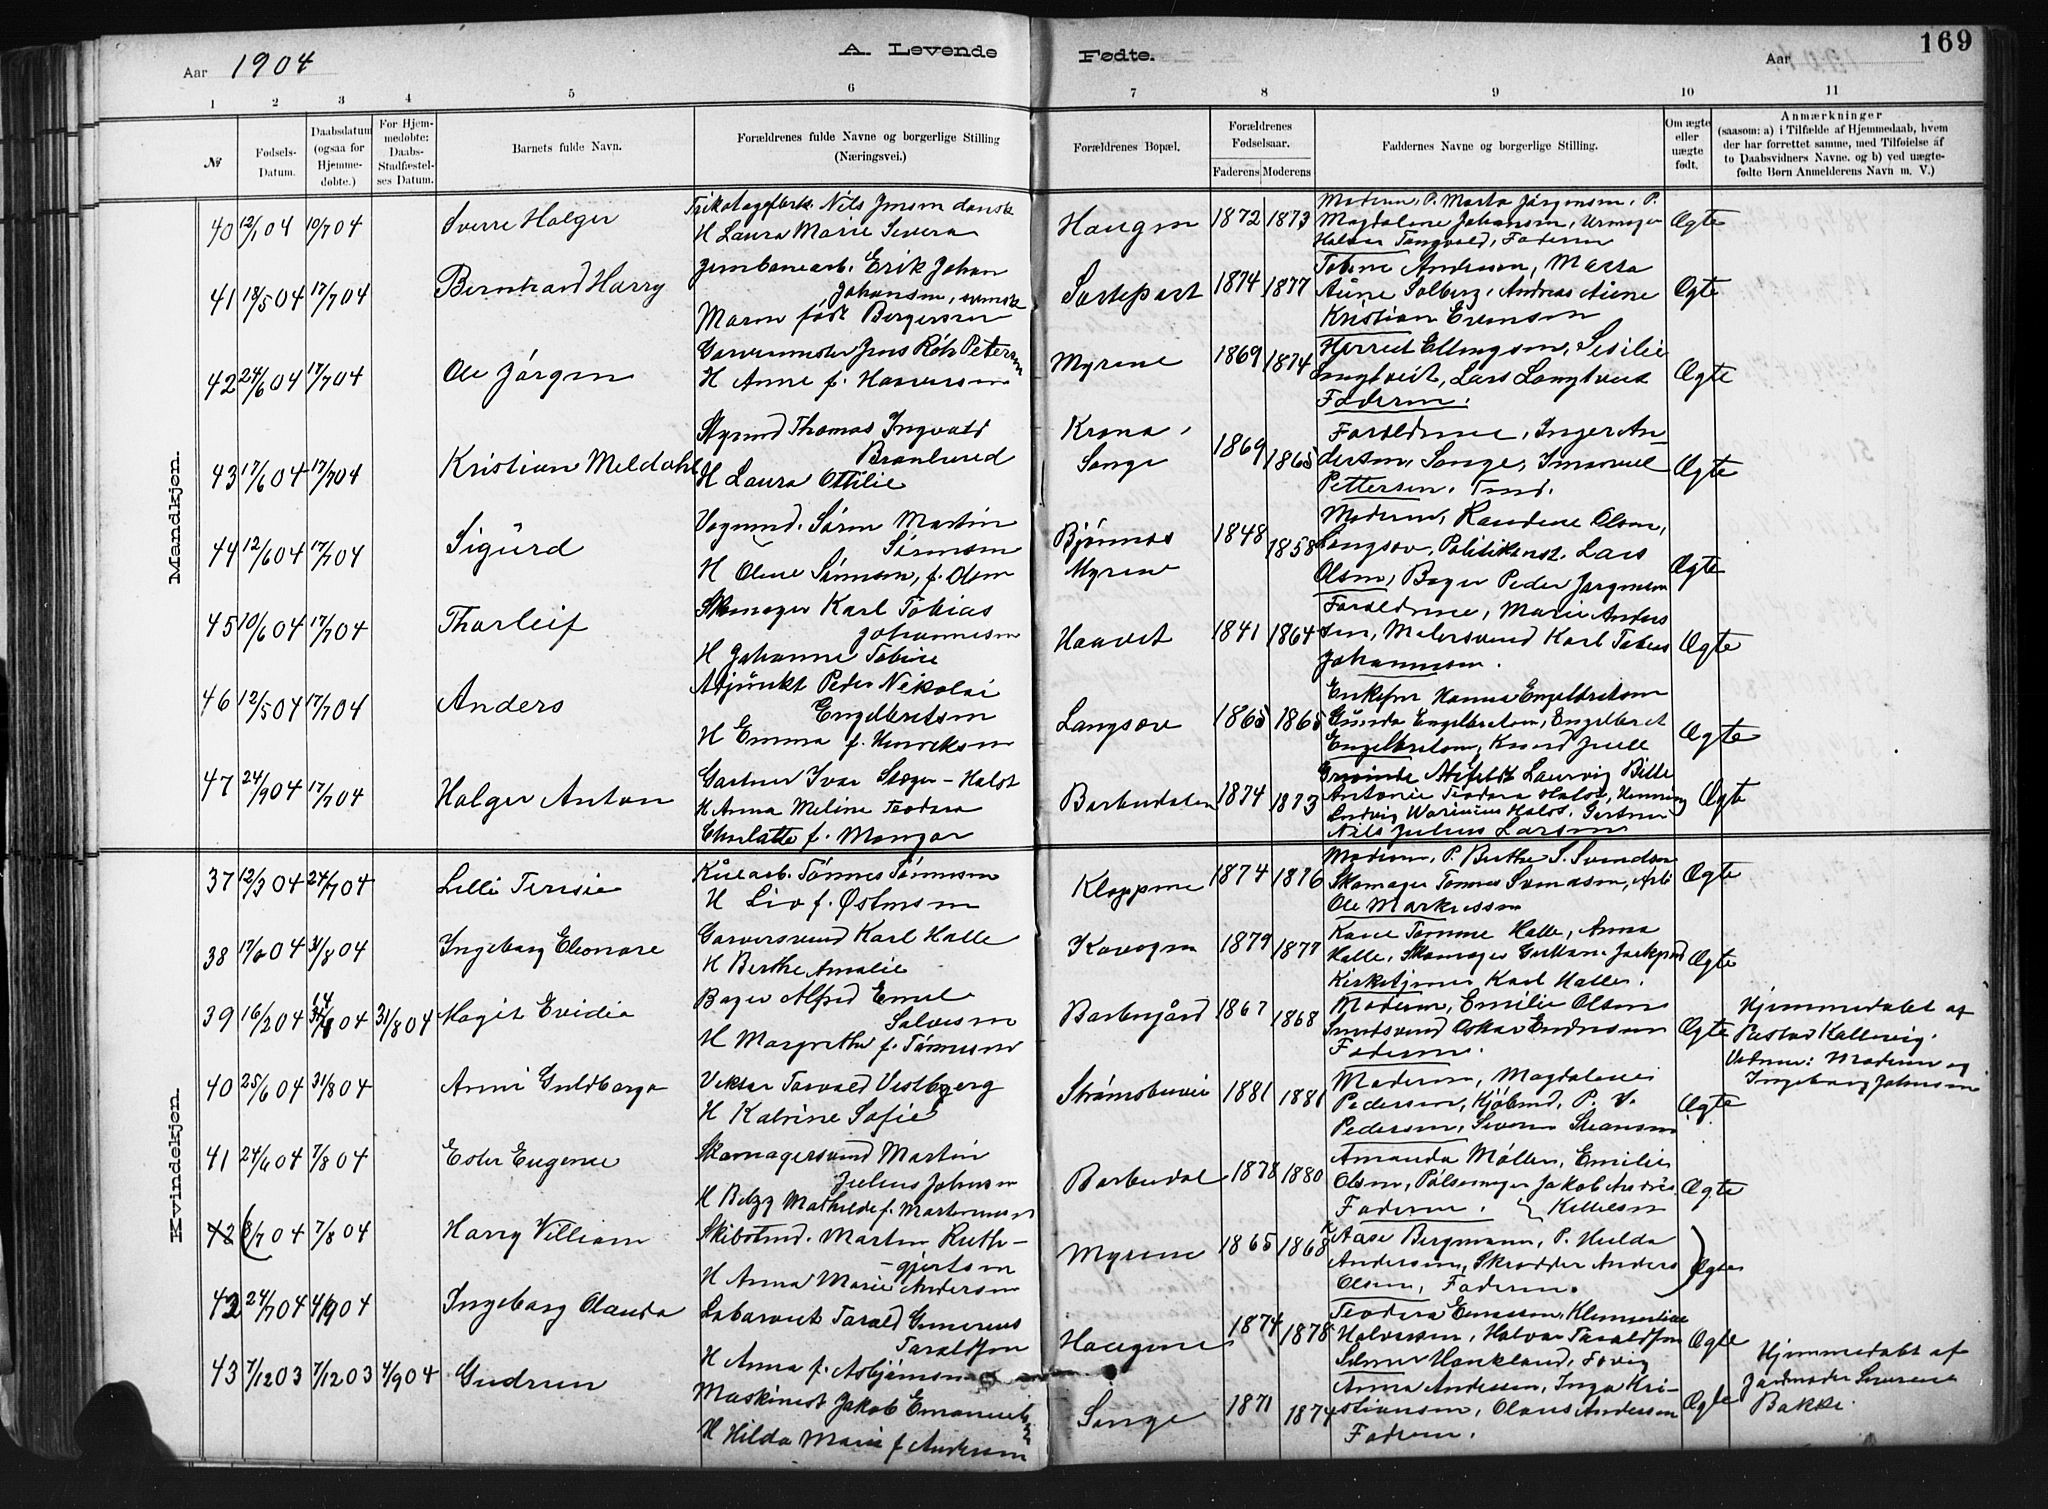 Aar 1904
A. Levende Fødte.
Aar
169
1 2 3 4 5 6 7 8 9 10 11
№
Fødsels-
Datum.
Daabsdatum
(ogsaa for
Hjemme-
døbte.)
For Hjem-
medøbte:
Daabs-
Stadfæstel-
ses Datum.
Barnets fulde Navn.
Forældrenes fulde Navne og borgerlige Stilling
(Næringsvei.)
Forældrenes Bopæl.
Forældrenes
Fødselsaar.
Faderens Moderens
Faddernes Navne og borgerlige Stilling.
Om ægte
eller
uægte
født.
Anmærkninger
(saasom: a) i Tilfælde af Hjemmedaab, hvem
der har forrettet samme, med Tilføielse af
to Daabsvidners Navne. og b) ved uægte-
fødte Børn Anmelderens Navn m. V.)
Mandkjøn.
40 12/1 04 10/7 04 Sverre Holger
Nils Jensen dansk
H Laura Marie Severa
Haugen 1872 1873
Moderen, P. Marta Jørgensen, P.
Magdalene Johansen, Urmager
Halvor Tangvald, Faderen
Ægte
41 18/5 04 17/7 04 Bernhard Harry
Jernbanearb. Erik Johan
Johansen, svensk
Maren født Bergersen
1874 1877
Tobine Andersen, Marta
Aüne Solberg, Andreas Aüne
Kristian Evensen
Ægte
42 24/6 04 17/7 04 Ole Jørgen
Garvermester Jens Petersen
H Anne f. Halvorsen
Myrene 1869 1874
Ellingsen, Sesilie
Langtveit, Lars Langtveit
Faderen.
Ægte
43 17/6 04 17/7 04 Kristian Meldahl
Styrmd Thomas Ingvald
H Laura Ottilie
Krona,
Songe
1869 1865
Forældrene, Inger An-
dersen, Songe, Imanuel
Pettersen, Tmd.
Ægte
44 12/6 04 17/7 04 Sigürd
Vognmd. Søren Martin
Sørensen
H Oline Sørensen, f. Olsen
Bjønnes
Myrene
1848 1858
Moderen, Olsen,
Langsæv, Politikonst. Lars
Olsen, Bager Peder Jørgensen
Ægte
45 10/6 04 17/7 04 Thorleif
Skomager Karl Tobias
Johannesen
H Johanne Tobine
Haavet 1841 1864
Forældrene, Marie Anders
sen, Malersvend Karl Tobias
Johannesen.
Ægte
46 12/5 04 17/7 04 Anders
Adjünkt Peder Nikolai
Engelbretsen
H Emma f. Henriksen
Langsæe 1865 1865
Enkefru Hanna Engelbretsen
Gunda Engelbretsen, Engelbret
Engelbretsen, Knud Juell
Ægte
47 24/9 04 17/7 04 Holger Anton
Gartner Ivar Steger-Holst
H Anna Meline Teodora
Charlotte f. Mangor
Barbudalen 1874 1873
Grevinde Ahlefeldt Laurvig Bille
Antonie Teodora Holst, Henning
Ludvig Holst, Gartner
Nils Julius Larsen
Ægte
Kvindekjøn.
37 12/3 04 24/7 04 Lilli Terisie
Tønnes Tønnesen
H Liv f. Østensen
Kloppene 1874 1876
Moderen, P. Berthe S. Svendsen
Skomager Tønnes Svendsen, Arb.
Ole Markussen
Ægte
38 17/6 04 31/8 04 Ingeborg Eleonore
Garversvend Karl Halle
H Berthe Amalie
1879 1877
Kaie Tomine Halle, Anna
Halle, Skomager
Kirketjener Karl Halle.
Ægte
39 16/2 04 04 31/8 04 Magit Evidia
Bager Alfred Emil
Salvesen
H Margrethe f. Tønnesen
Barbogård 1867 1868
Moderen, Emilie Olsen
Smedsvend Oskar Endresen
Faderen.
Ægte
Hjemmedøbt af
Pastor Kallevig.
Vidner: Moderen og
Ingeborg Johnsen
40 25/6 04 31/8 04 Anni Guldborga
Viktor Torvald Vestbyerg
H Katrine Sofie
Strømsbuvei 1881 1881
Moderen, Magdalene
Pedersen, Kjøbmd. P. V.
Pedersen, Severin
Ægte
41 24/6 04 7/8 04 Ester Eugenie
Skomagersvend Martin
Julius Johnsen
H Betzy Mathilde f. Martinusen
Barbudal 1878 1880
Amanda Møller, Emilie
Olsen, Pølsemager Jakob Andrés
Faderen. Killesen
Ægte
42 8/7 04 7/8 04 Harry Villiam
Skibstmd. Martin Ruth-
-gjertsen
H Anna Marie Andersen
Myrene 1865 1868
Aase Bergmann, P. Hulda
Andersen, Skrædder Anders
Olsen, Faderen.
Ægte
42 24/7 04 4/9 04 Ingeborg Olanda
Tarald Gunerius
Taraldsen
H Anna f. Asbjørnsen
Haugene 1874 1878
Teodora Evensen,
Halvorsen, Halvor Taraldsen
Haukland,
Ægte
43 7/12 03 7/12 03 4/9 04 Gudrun
Maskinist Jakob Emanuelsen
H Hilda Marie f Andersen
Songe 1871 1874
Anna Andersen, Inga Kri-
stiansen, Olaus Andersen
Faderen.
Ægte
Hjemmedøbt af
Jordmoder Severine
Bakke.